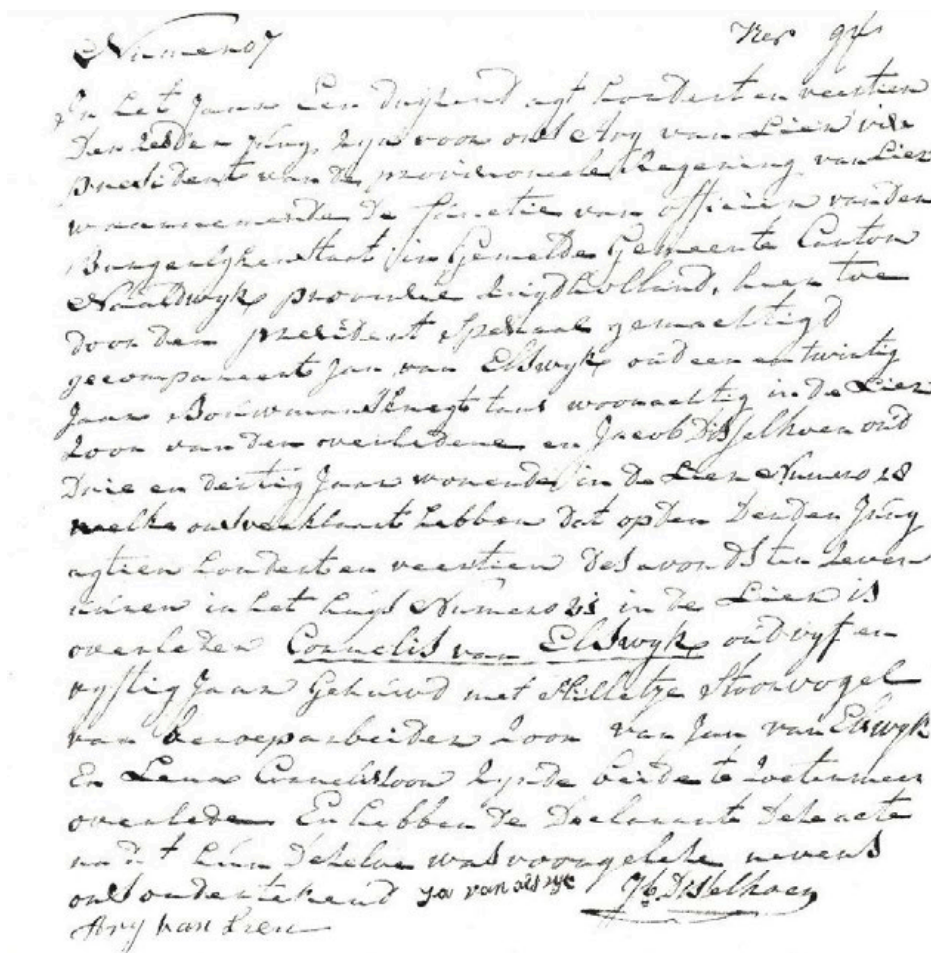 Numero 7
In het Jaar Een duijzend agt hondert en veertien
Den Juny, zyn voor ons Ary van Lier vice
president van de provisioneele Regering van Lier
waarnemende de functie van officier van den
Burgerlyken Staat in Gemelde Gemeente Canton
Naaldwyk provintie Zuydholland, hier toe
door den president Speciaal gemachtigd
gecompareert Jan van Elswyk oud een en twintig
Jaar Bouwmansknegt woonachtig in de Lier
Zoon van den overledene en Jacob Disselkoen oud
Drie en dertig Jaar wonende in de Lier Numero 28
welke ons verklaart hebben dat op den Derden Juny
agtien hondert en veertien des avonds ten zeven
uuren in het huys Numero 21 in de Lier is
overleden Cornelis van Elswyk oud vyf en
vyftig Jaar Gehuwd met Stoorvogel
van beroep arbeider zoon van Jan van Elswyk
En Lena Cornelisdoon zynde beide te Zoetermeer
overleden En hebben de Declarante Deze acte
na dat hun Dezelve was voorgeleze nevens
ons ondertekend Ja van als wyc Jb Disselkoen
Ary van Lier